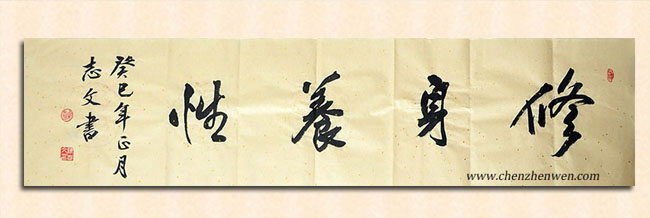 修身養性
癸巳年正月
志文書
www.chenzhenwen.com